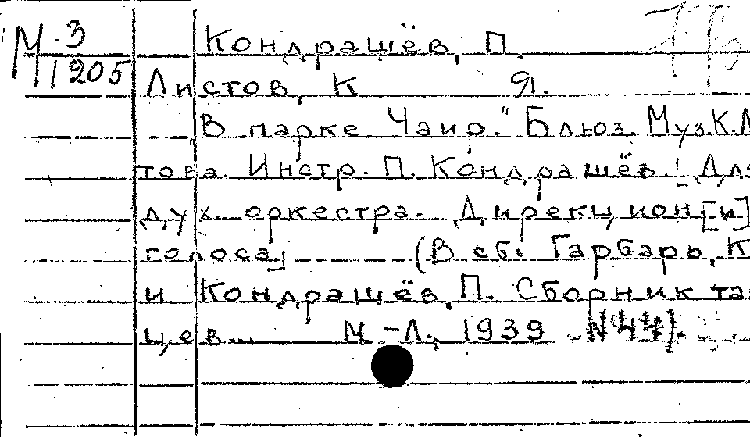 М.3
1205
Кондрашёв, П.
Листов, К Я.
"В парке Чаир." Блюз. Муз. К. Л
това. Инстр. П. Кондрашёв. Для
дух. оркестра. Дирекцион[и]
голоса] (В сб. Гарбарь, К
и Кондрашёв, П. Сборник тан
цев... М.-Л., 1939 №44].